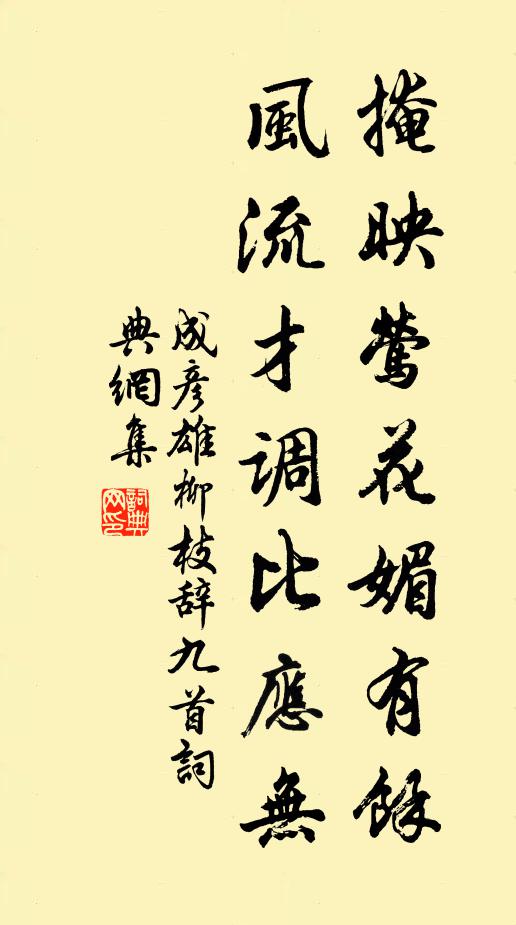 掩映鶯花媚有餘
風流才調比應無
成彥雄柳枝辞九首詞
典網集
詞典網印